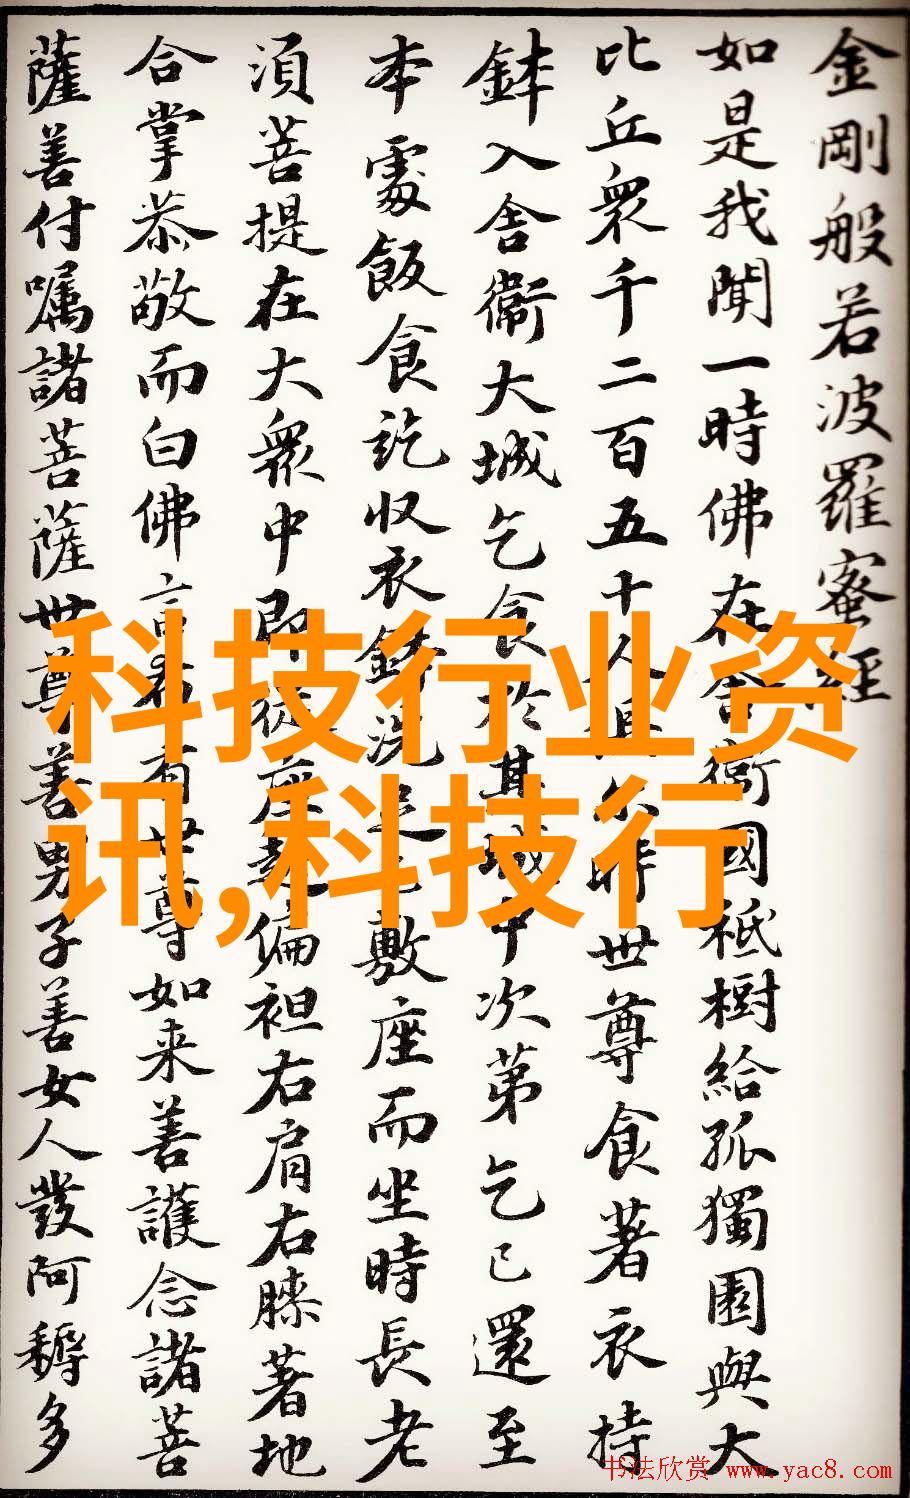 金剛般若波羅蜜經
如是我聞一時佛在舍衛國祇樹給孤獨園與大
比丘衆千二百五十人俱尒時世尊食著衣持
鉢入舍衛大城乞食於其城中次第乞已還至
本處飯食訖收衣鉢洗足已敷座而坐時長老
須菩提在大衆中即從座起偏袒右肩右膝著地
合掌恭敬而白佛言希有世尊如来善護念諸菩
薩善付嘱諸菩薩世尊善男子善女人發阿耨多
科技行业资
讯,科技行
书法欣赏 www.yac8.com